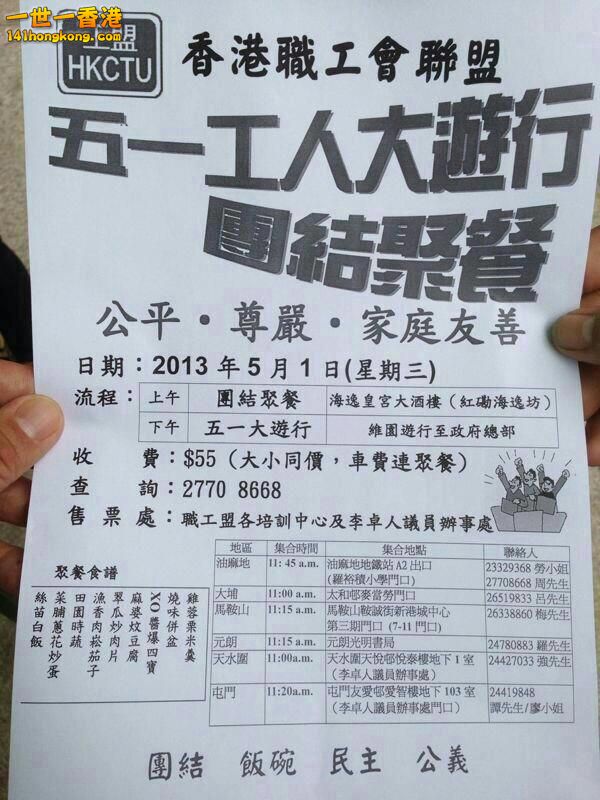 一世一香港
141hongkong.com
HKCTU
香港職工會聯盟
五一工人大遊行
團結聚餐
公平·尊嚴·家庭友善
日期：2013年5月1日(星期三)
流程： 上午 團結聚餐 海逸皇宮大酒樓（紅磡海逸坊）
下午 五一大遊行 維園遊行至政府總部
收費：$55（大小同價，車費連聚餐）
查詢：2770 8668
售票處：職工盟各培訓中心及李卓人議員辦事處
聚餐食譜
雞蓉粟米羹
燒味併盆
XO醬爆四寶
麻婆炆豆腐
翠瓜炒肉片
漁香肉崧茄子
田園時蔬
菜脯蔥花炒蛋
絲苗白飯
地區 集合時間 集合地點 聯絡人
油麻地 11:45 a.m. 油麻地地鐵站A2出口 23329368 勞小姐
（羅裕積小學門口） 27708668 周先生
大埔 11:00 a.m. 太和邨麥當勞門口 26519833 呂先生
馬鞍山 11:15 a.m. 馬鞍山鞍誠街新港城中心 26338860 梅先生
第三期門口（7-11門口）
元朗 11:15 a.m. 元朗光明書局 24780883 羅先生
天水圍 11:00a.m. 天水圍天悅邨悅泰樓地下1室 24427033 強先生
（李卓人議員辦事處）
屯門 11:20a.m. 屯門友愛邨愛智樓地下103室 24419848
（李卓人議員辦事處門口） 譚先生/廖小姐
團結 飯碗 民主 公義